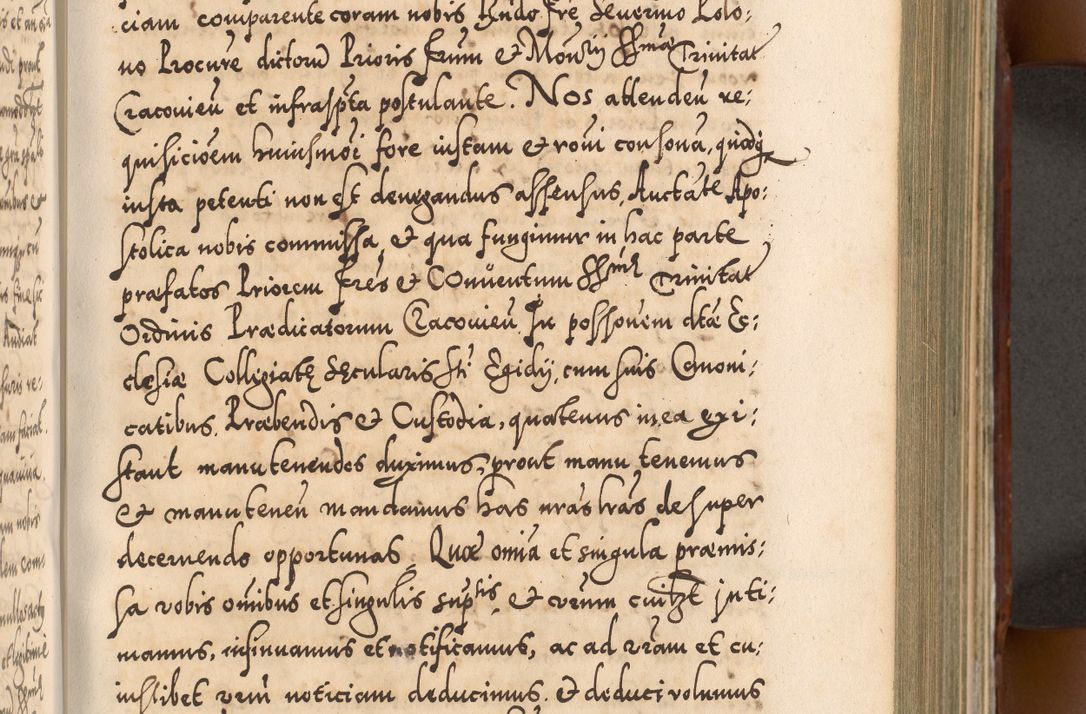 ciam comparente coram nobis Rñdo fre Seuerino Polo:
no Procure dictorũ Prioris frum & Mon̄rij SSmæ Trinitat
Cracouieñ et infraspta postulante. Nos attendeñ re:
quisicioẽm huiusmoi fore iustam & roñi consonã, quodq
iusta petenti non est denegandus assensus, Auctate Apo:
stolica nobis commissa, et qua fungimur in hac parte
præfatos Priorem frēs & Conuentum SSmæ Trinitat
Ordinis Prædicatorum Cracouieñ In possonem dtæ Ec:
clesiæ Collegiatę Secularis Sti Egidij, cum suis Canoni:
catibus, Præbendis & Custodia, quatenus in ea exi:
stant manutenendos duximus, prout manu tenemus
& manuteneñ mandamus has nras lras desuper
decernendo opportunas. Quæ omia et singula præmis:
sa vobis omibus et singulis suptis, & vrum cuilibt inti:
mamus, insinuamus et notificamus, ac ad vram et cu:
iuslibet vrm̄ noticiam deducimus, & deduci volumus